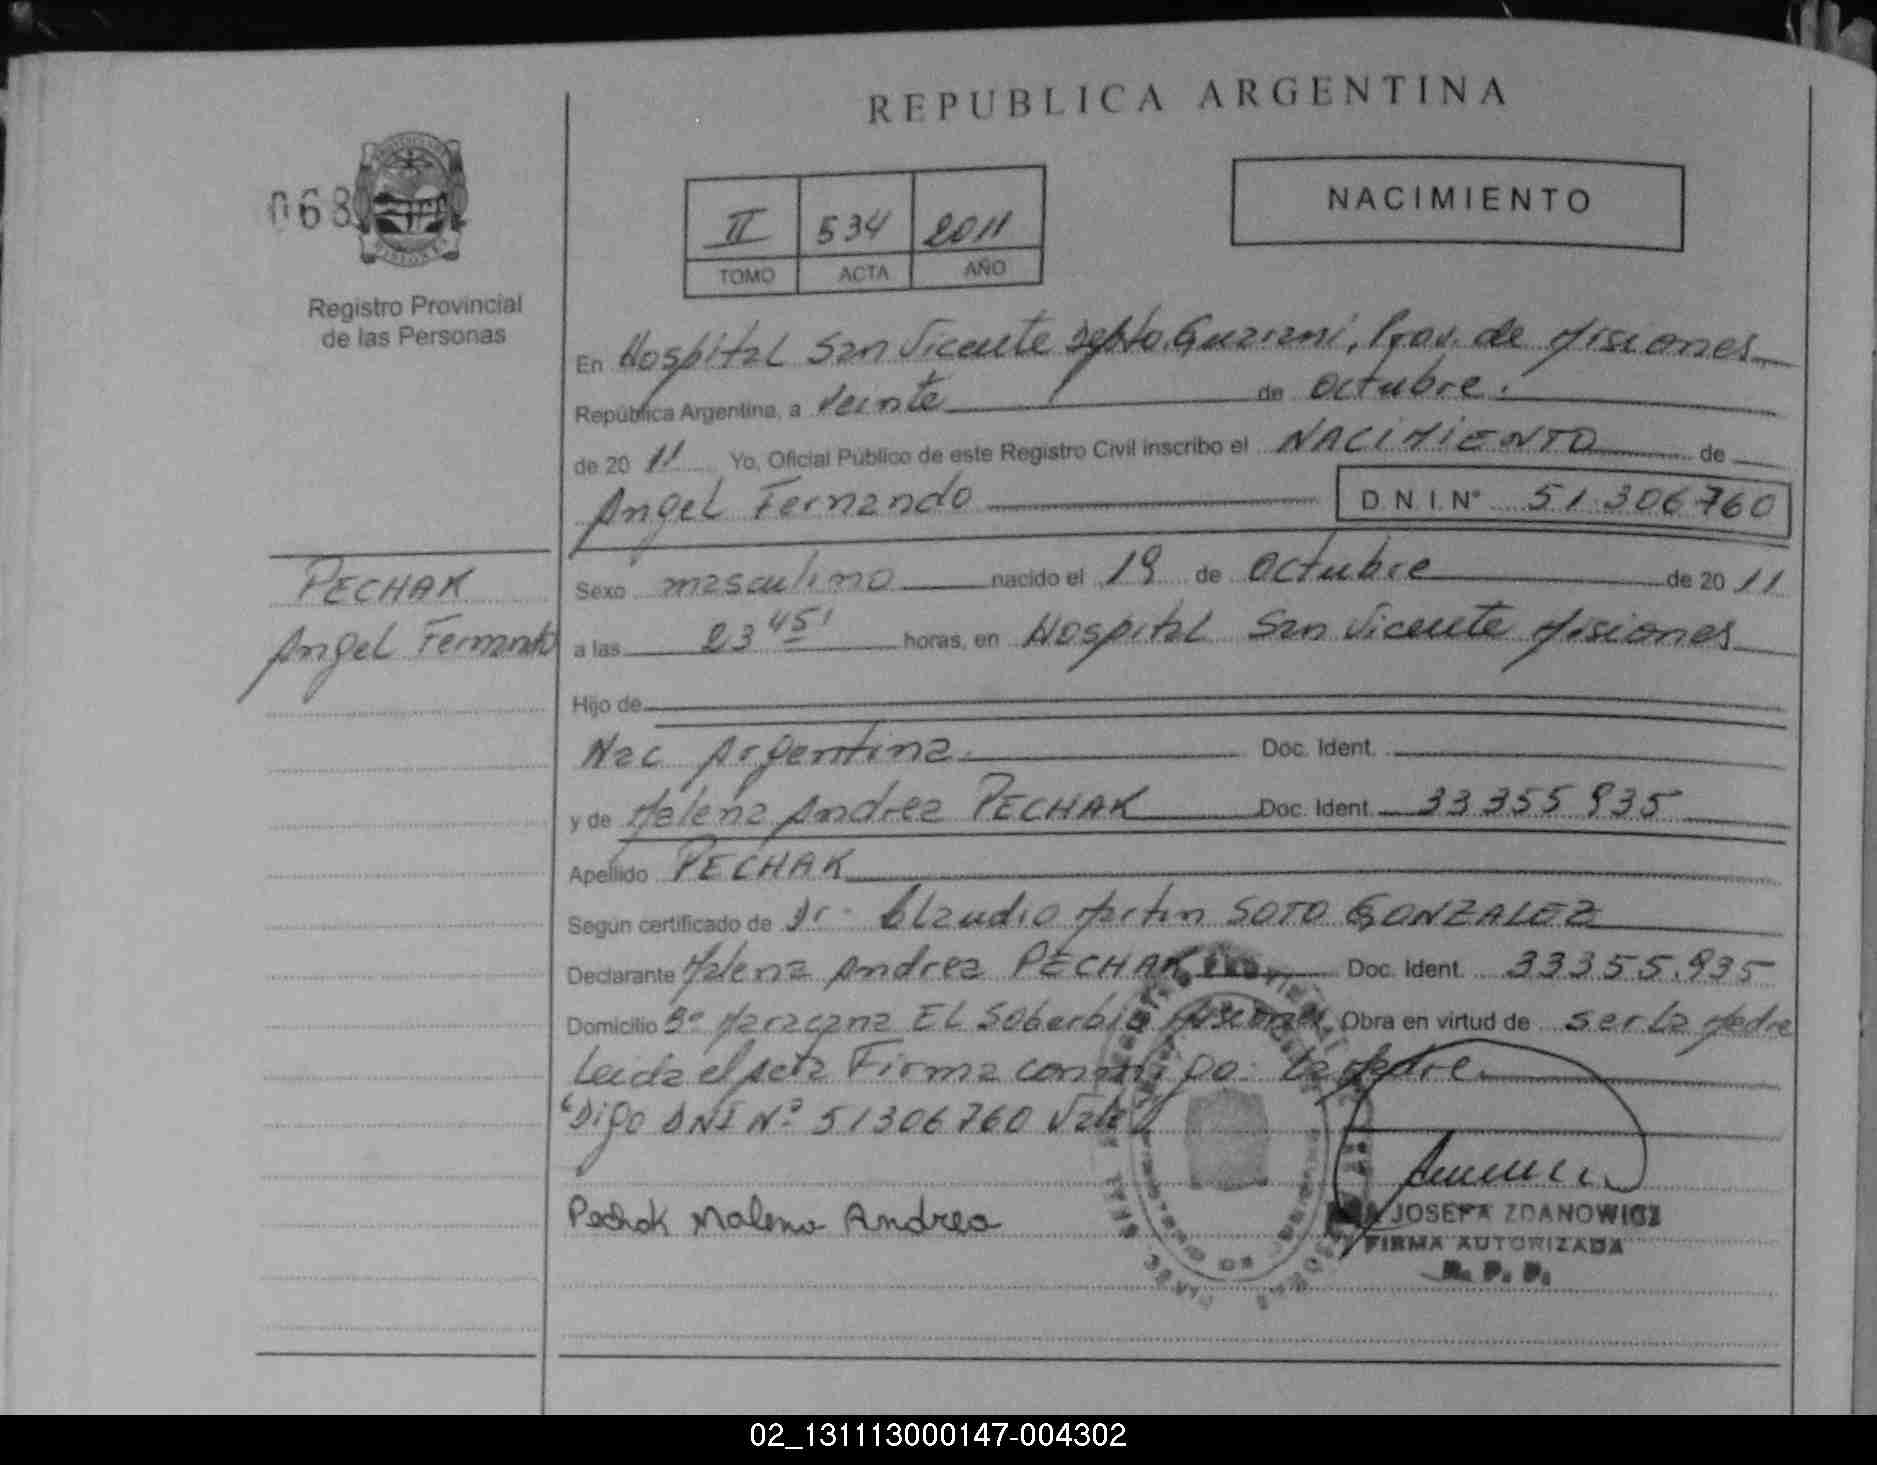 REPUBLICA ARGENTINA
068
NACIMIENTO
II 534 2011
TOMO ACTA AÑO
Registro Provincial
de las Personas
En Hospital San Vicente Depto. Guarani, Prov. de Misiones
República Argentina, a veinte de octubre.
de 20 11 Yo, Oficial Público de este Registro Civil inscribo el NACIMIENTO de
Angel Fernando D.N.I. N° 51.306760
PECHAK
Angel Fernando
Sexo masculino nacido el 19 de octubre de 20 11
a las 23 45' horas, en Hospital San Vicente Misiones
Hijo de
Nac Argentina. Doc. Ident.
y de Malena Andrea PECHAK Doc. Ident. 33355935
Apellido PECHAK
Según certificado de Dr. Claudio Martin SOTO GONZALEZ
Declarante Malena Andrea PECHAK Doc. Ident. 33355.935
Domicilio Bº Maracana EL Soberbio Misiones, Obra en virtud de ser la Madre
Leida el Acta Firma conmigo: La Madre.
"Digo DNI Nº 51306760 Vale"
Pechak Malena Andrea
JOSEFA ZDANOWICZ
FIRMA AUTORIZADA
R. P. P.
02_131113000147-004302